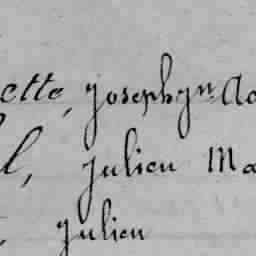 ette, Josephyn Ao
l, Julien Ma
, Julien